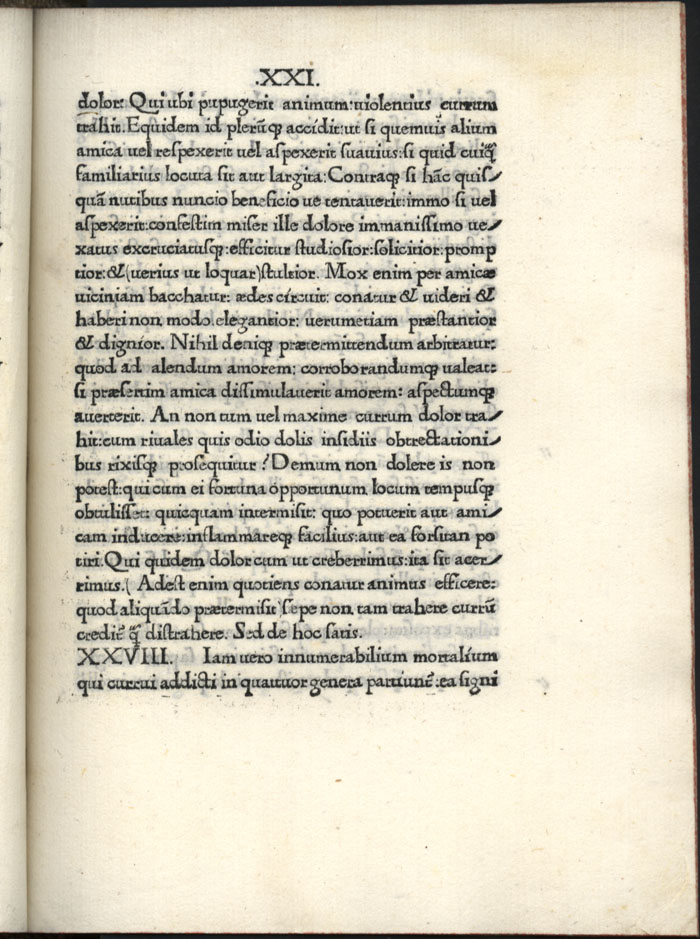 .XXI.
dolor: Qui ubi pupugerit animum:uiolentius currum
trahit.Equidem id plerūq̄ accidit:ut si quemuis alium
amica uel respexerit uel aspexerit suauius:si quid cuiq̄
familiarius locuta sit aut largita: Contraq̄ si hāc quis/
quā nutibus nuncio beneficio ue tentauerit:immo si uel
aspexerit:confestim miser ille dolore immanissimo ue/
xatus excruciatusq̄:efficitur studiosior:solicitior:promp
tior:&(uerius ut loquar)stultior. Mox enim per amicæ
uiciniam bacchatur: ædes circuit: conatur & uideri &
haberi non modo elegantior: uerumetiam præstantior
& dignior. Nihil deniq̄ prætermittendum arbitratur:
quod ad alendum amorem: corroborandumq̄ ualeat:
si præsertim amica dissimulauerit amorem: aspectumq̄
auerterit. An non tum uel maxime currum dolor tra/
hit:cum riuales quis odio dolis insidiis obtrectationi/
bus rixisq̄ prosequitur? Demum non dolere is non
potest:qui cum ei fortuna opportunum locum tempusq̄
obtulisset: quicquam intermisit: quo potuerit aut ami/
cam inducere:inflammareq̄ facilius:aut ea forsitan po
tiri.Qui quidem dolor cum ut creberrimus:ita sit acer/
rimus.( Adest enim quotiens conatur animus efficere:
quod aliquādo prætermisit sepe non tam trahere currū
crediť q̄ distrahere. Sed de hoc satis.
XXVIII. Iam uero innumerabilium mortalium
qui currui addicti in quattuor genera partiunť:ea signi